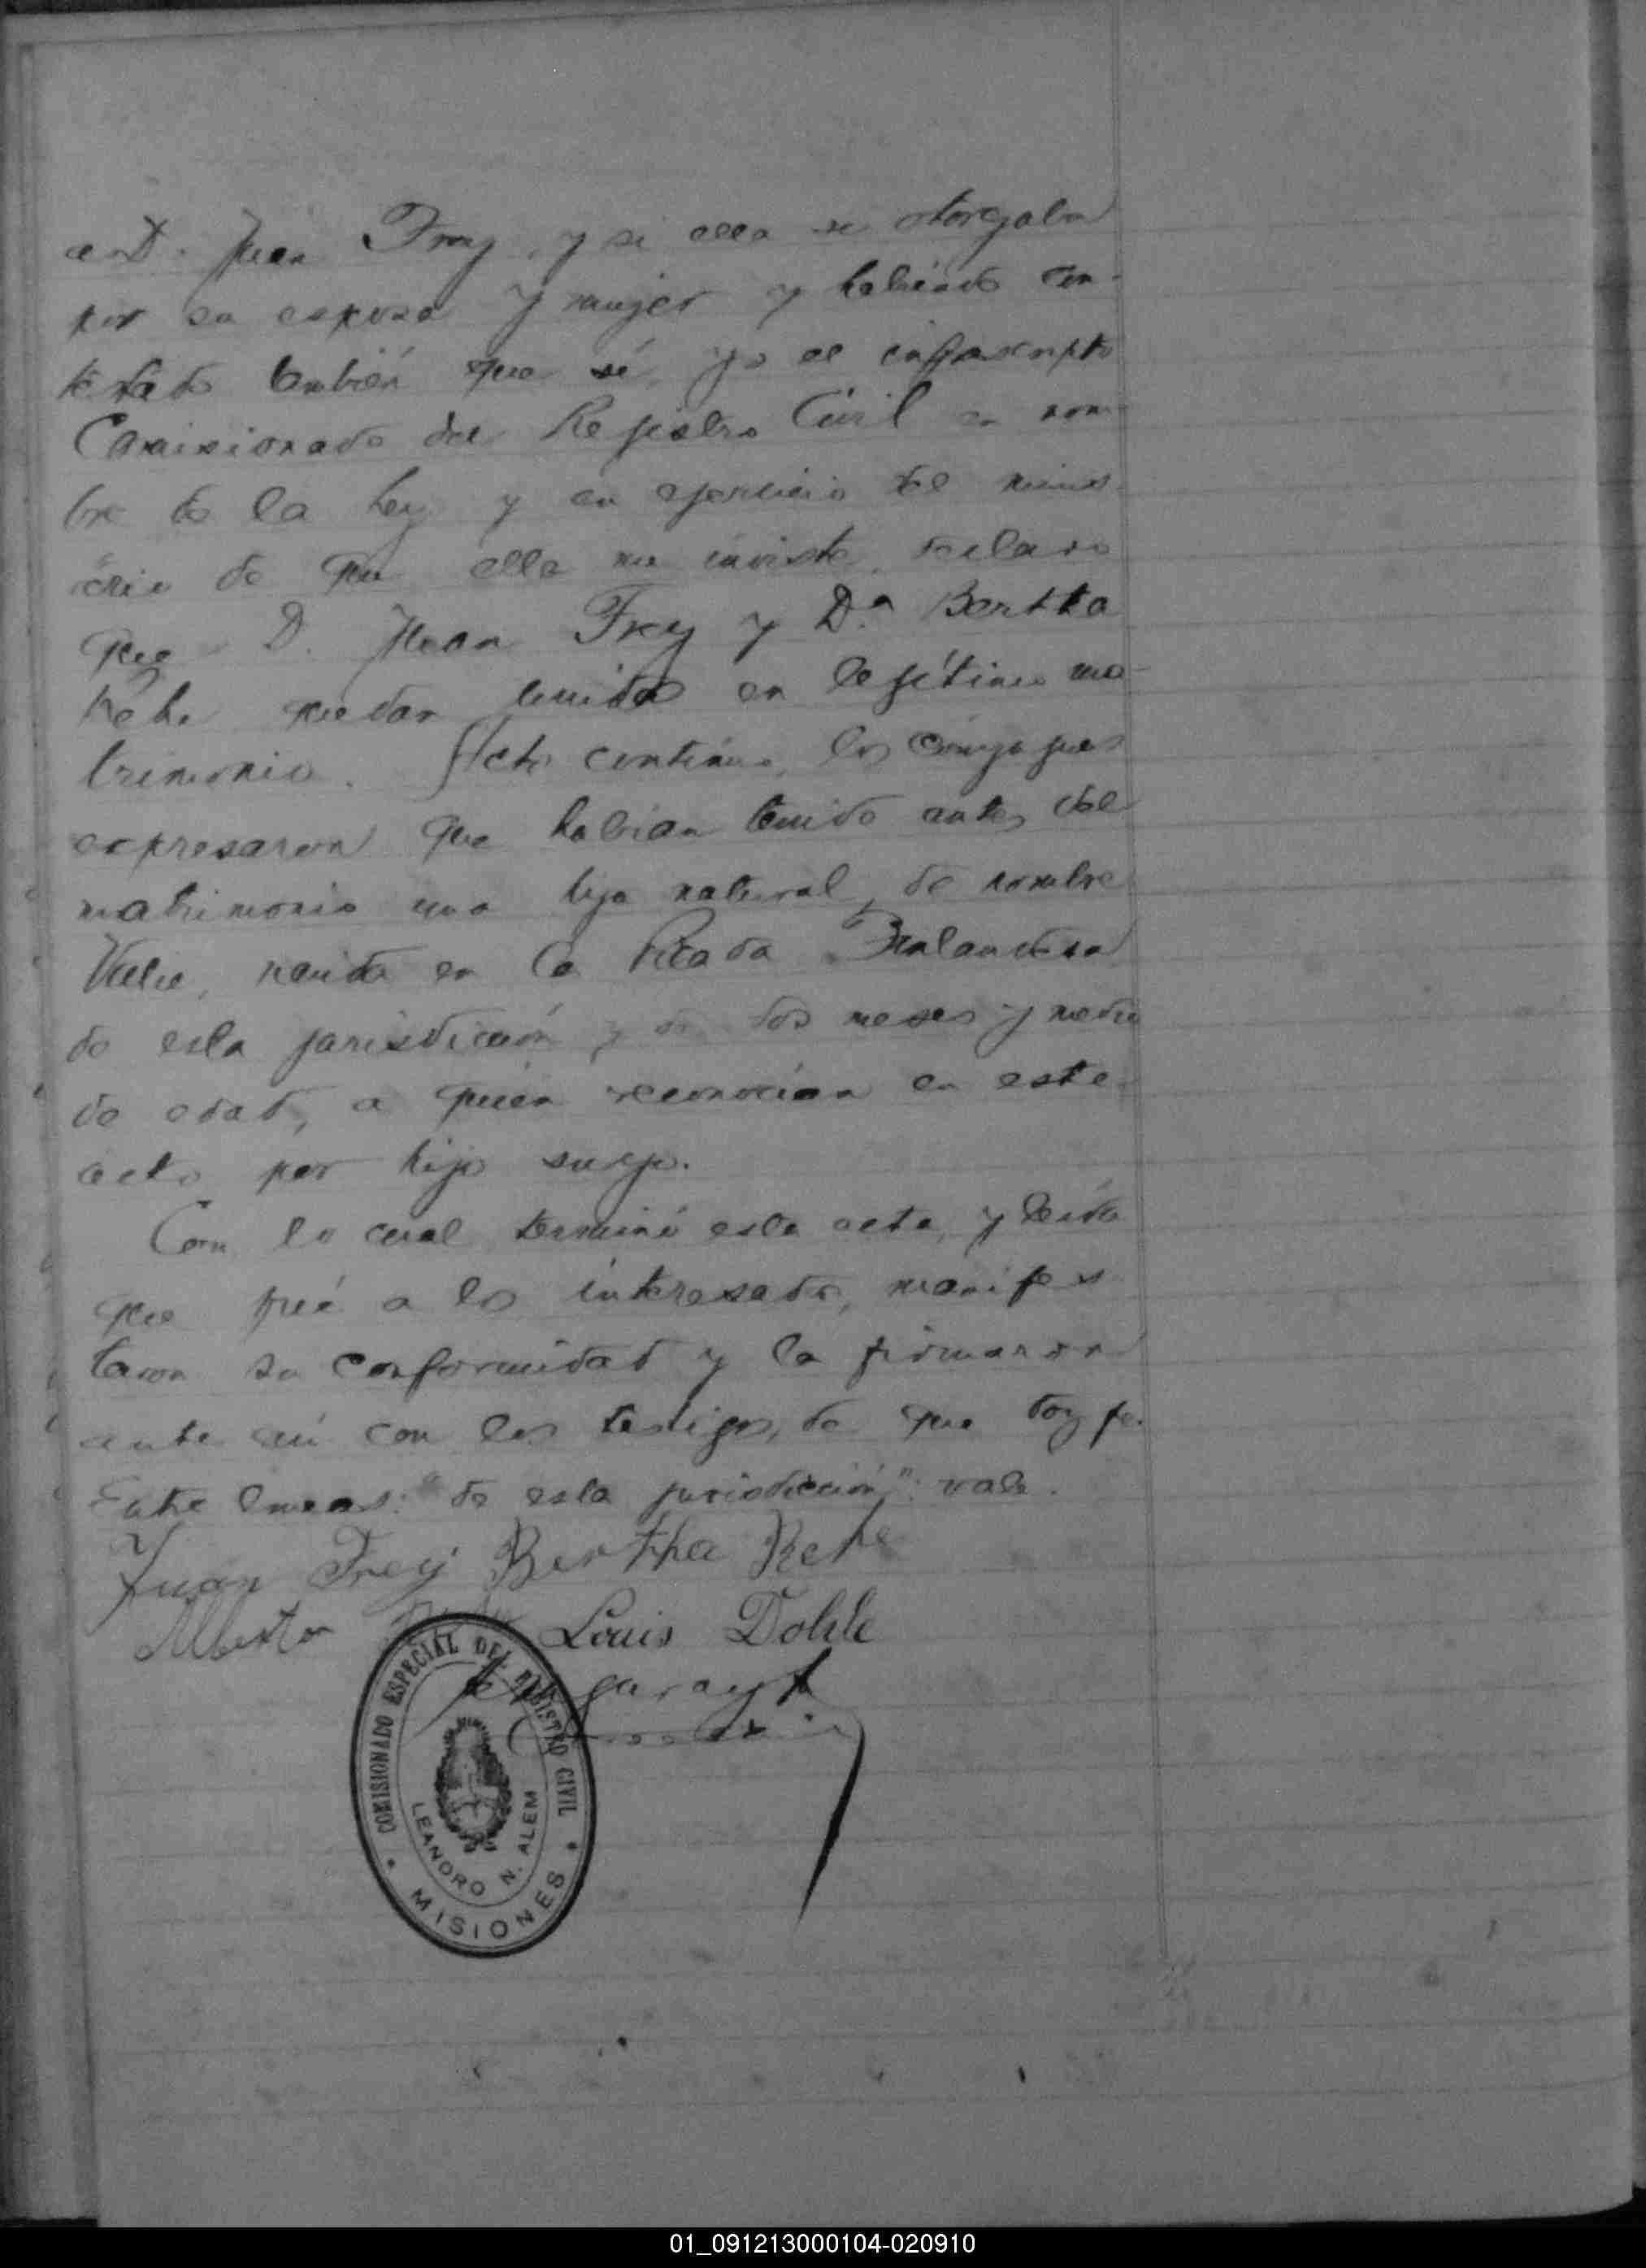 a D. Juan Frey, y si ella se otorgaba
por su esposa y mujer y habiendo con-
testado también que sí, yo el infrascripto
Comisionado del Registro Civil en nom-
bre de la Ley y en ejercicio del minis-
terio de que ella me inviste, declaro
que D. Juan Frey y Dª Bertha
quedan unidos en legítimo ma-
trimonio. Acto contínuo, los cónyugues
expresaron que habían tenido antes del
matrimonio una hija natural, de nombre
nacida en la Picada Finlandesa
de esta jurisdicción, y de dos meses y medio
de edad, a quien reconocían en este
acto por hijo suyo.
Con lo cual terminó esta acta, y leída
que fué a los interesados, manifes
taron su conformidad y la firmaron
ante mí con los testigos, de que doy fe.
Entre lineas: "de esta jurisdicción": vale.
Juan Frey Bertha
Alberto Louis
Garay
COMISIONADO ESPECIAL DEL REGISTRO CIVIL
LEANDRO N. ALEM
MISIONES
01_091213000104-020910